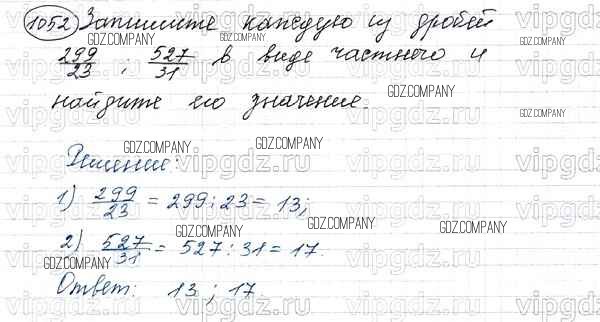 1052 Запишите каждую из дробей
299/23 ; 527/31 в виде частного и
найдите его значение.
Решение:
1) 299/23 = 299 : 23 = 13;
2) 527/31 = 527 : 31 = 17.
Ответ: 13 ; 17.
GDZ.COMPANY
vipgdz.ru